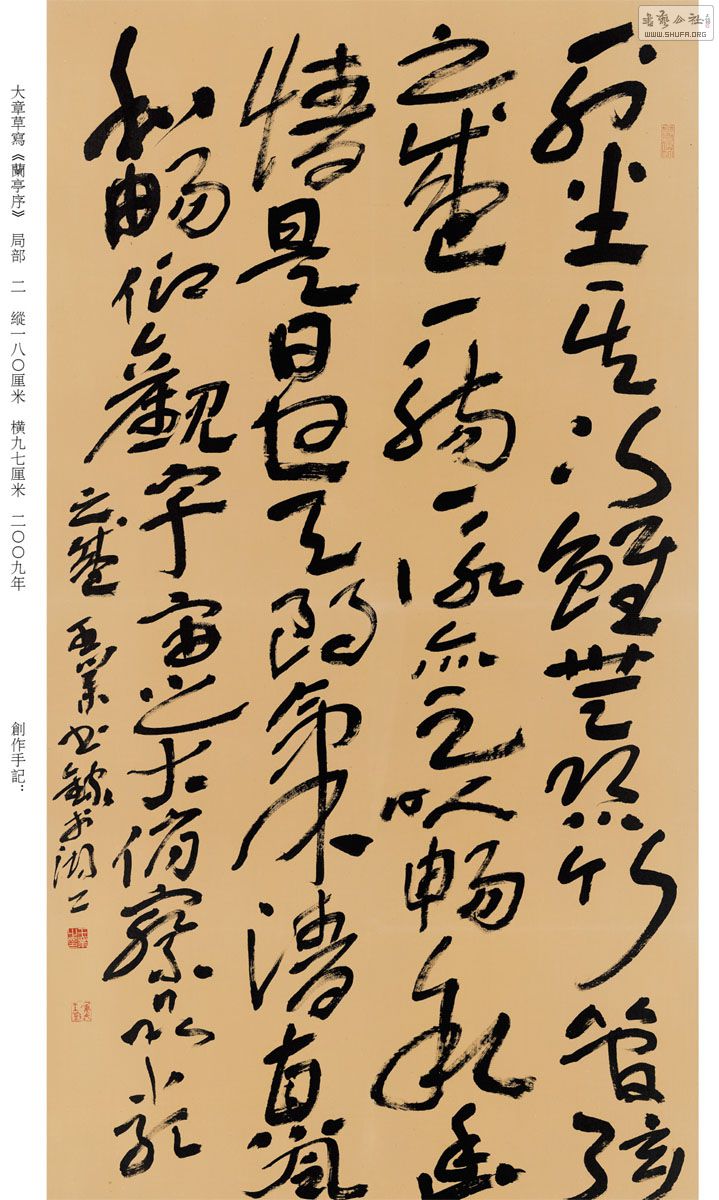 書藝公社
WWW.SHUFA.ORG
列坐其次雖無絲竹管弦
之盛一觴一詠亦足以暢敘幽
情是日也天朗氣清惠風
和暢仰觀宇宙之大俯察品類
之盛
大章草寫《蘭亭序》 局部 二 縱一八〇厘米 橫九七厘米 二〇〇九年
創作手記：